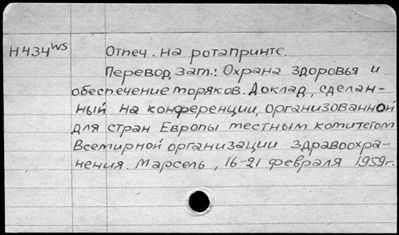 H434ws Отпеч. на ротапринте.
Перевод заг.: Охрана здоровья и
обеспечение моряков. Доклад, сделан-
ный на конференции, организованной
для стран Европы местным комитетом
Всемирной организации здравоохра-
нения. Марсель, 16-21 февраля 1959г.